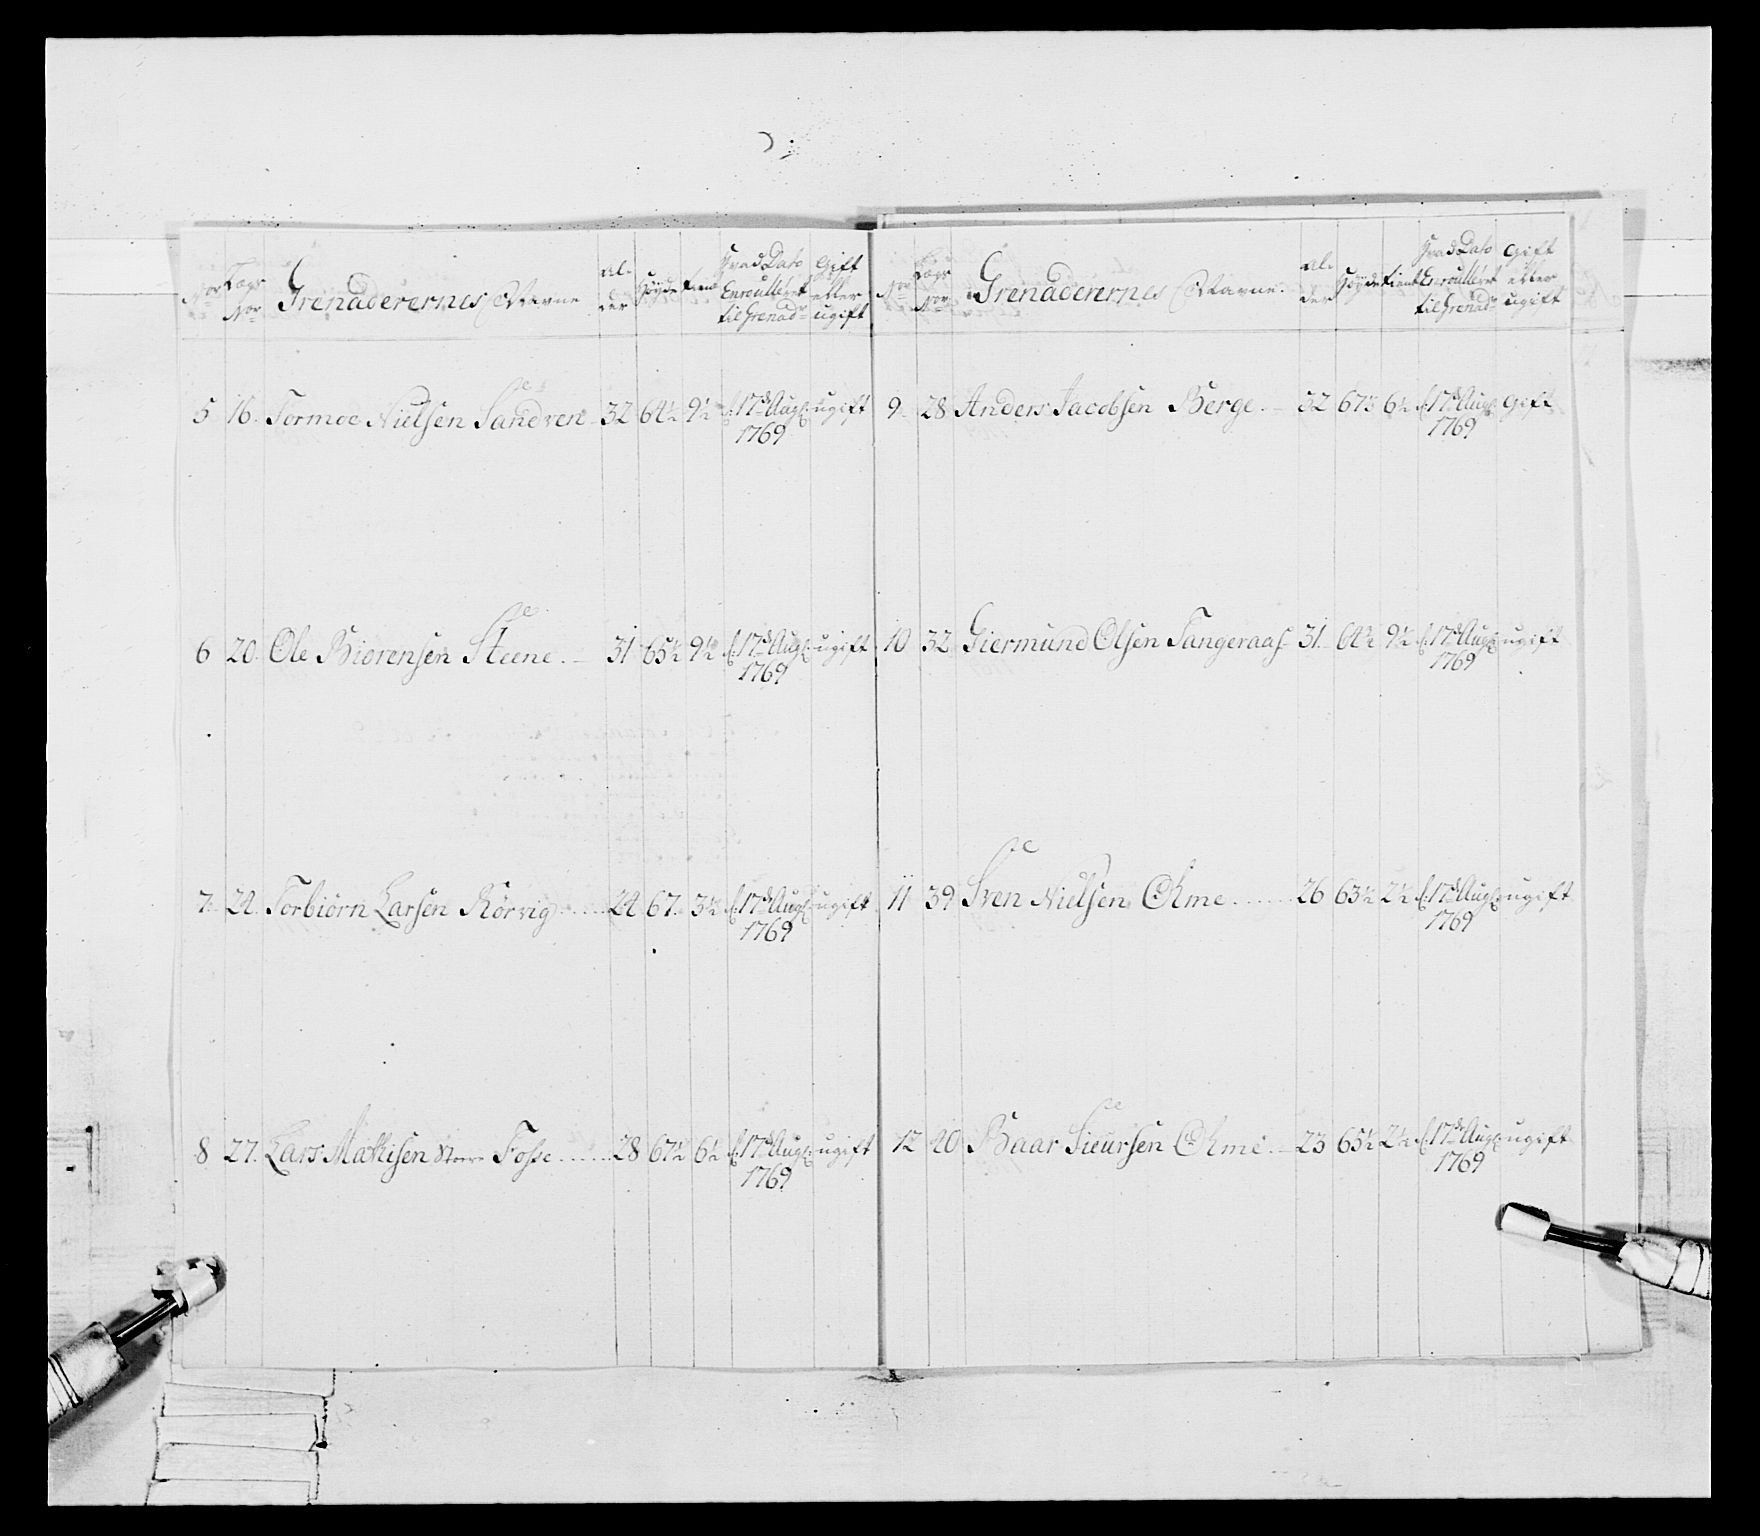 Nor Lægs Nor Grenaderernes Navne Alder Høyde tient Hvad Dato Enroulleret til Grenadr Gift eller ugift
5 16. Tormoe Nielsen Sandven 32 64½ 9½ d: 17de Aug: ugift
1769
6 20. Ole Biørensen Steene. 31 65½ 9½ d: 17de Aug: ugift
1769
7. 24. Torbiørn Larsen Rørvig 24 67. 3½ d: 17de Aug: ugift
1769
8 27. Lars Mathisen Fosse 28 67½ 6½ d: 17de Aug: ugift
1769
Nor Lægs Nor Grenaderernes Navne. Alder Høyde tient Hvad Dato Enroulleret til Grenadr Gift eller ugift
9. 28 Anders Jacobsen Berge. 32 67½ 6½ d: 17de Aug: Gift
1769
10 32 Giermund Olsen Tangeraas 31. 64½ 9½ d: 17de Aug: ugift
1769
11 39 Sven Nielsen Ohme 26 63½ 2½ d: 17de Aug: ugift
1769
12 40 Baar Sieursen Ohme. 23 65½ 2½ d: 17de Aug: ugift
1769